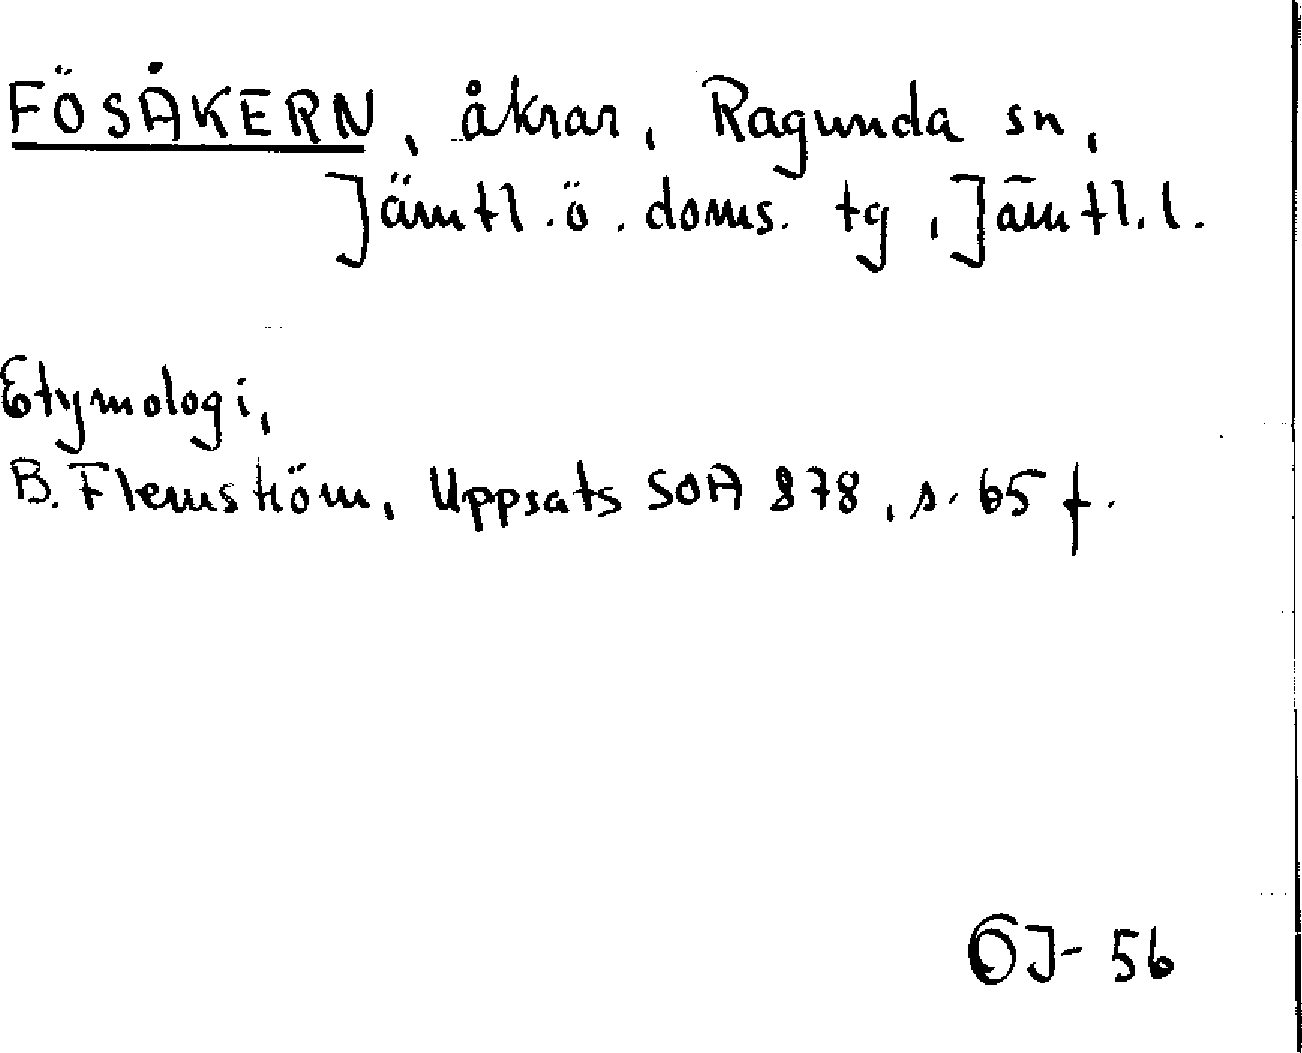 FÖSÅKERN, åkrar, Ragunda sn,
Jämtl.ö.doms.tg, Jämtl.l.
Etymologi,
B. Flemström, Uppsats SOA 878, s. 65 f.
OJ-56